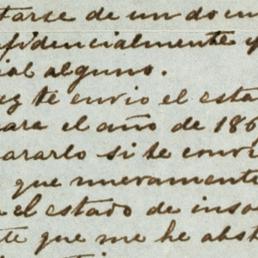 tarse de un docu
nfidencialmente y
ial alguno.
ez te envio el esta
para el año de 186
ararlo si te convi
que nuevamente
el estado de inso
te que me he abst